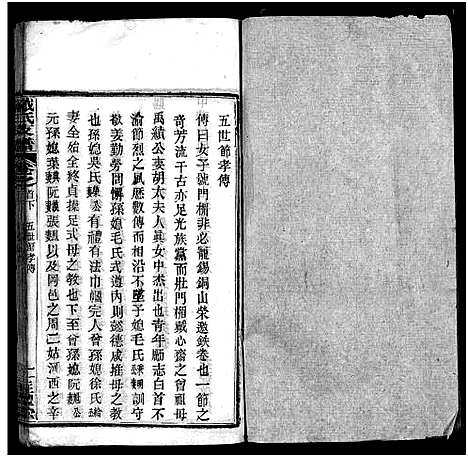 五世節孝傳
傳曰女子號門楣非必寵錫銅山榮邀鉄券也一節之
奇芳流千古亦足光族黨而壯門楣戴心齋之曾祖母
禹績公妻胡太夫人真女中杰出也青年勵志白首不
渝節烈之風歷數傳而相沿不墜子媳毛氏 訓守
欲姜勤勞罔懈孫媳毛氏式遵內則懿德咸推母之教
也孫媳吳氏 公有禮有法巾幗完人曾孫媳徐氏
妻全始全終貞操足式母之教也下至曾孫媳阮 公
元孫媳葉 阮 張 以及同邑之周二姑河西之辛
戴氏支譜
首下
五世節孝傳